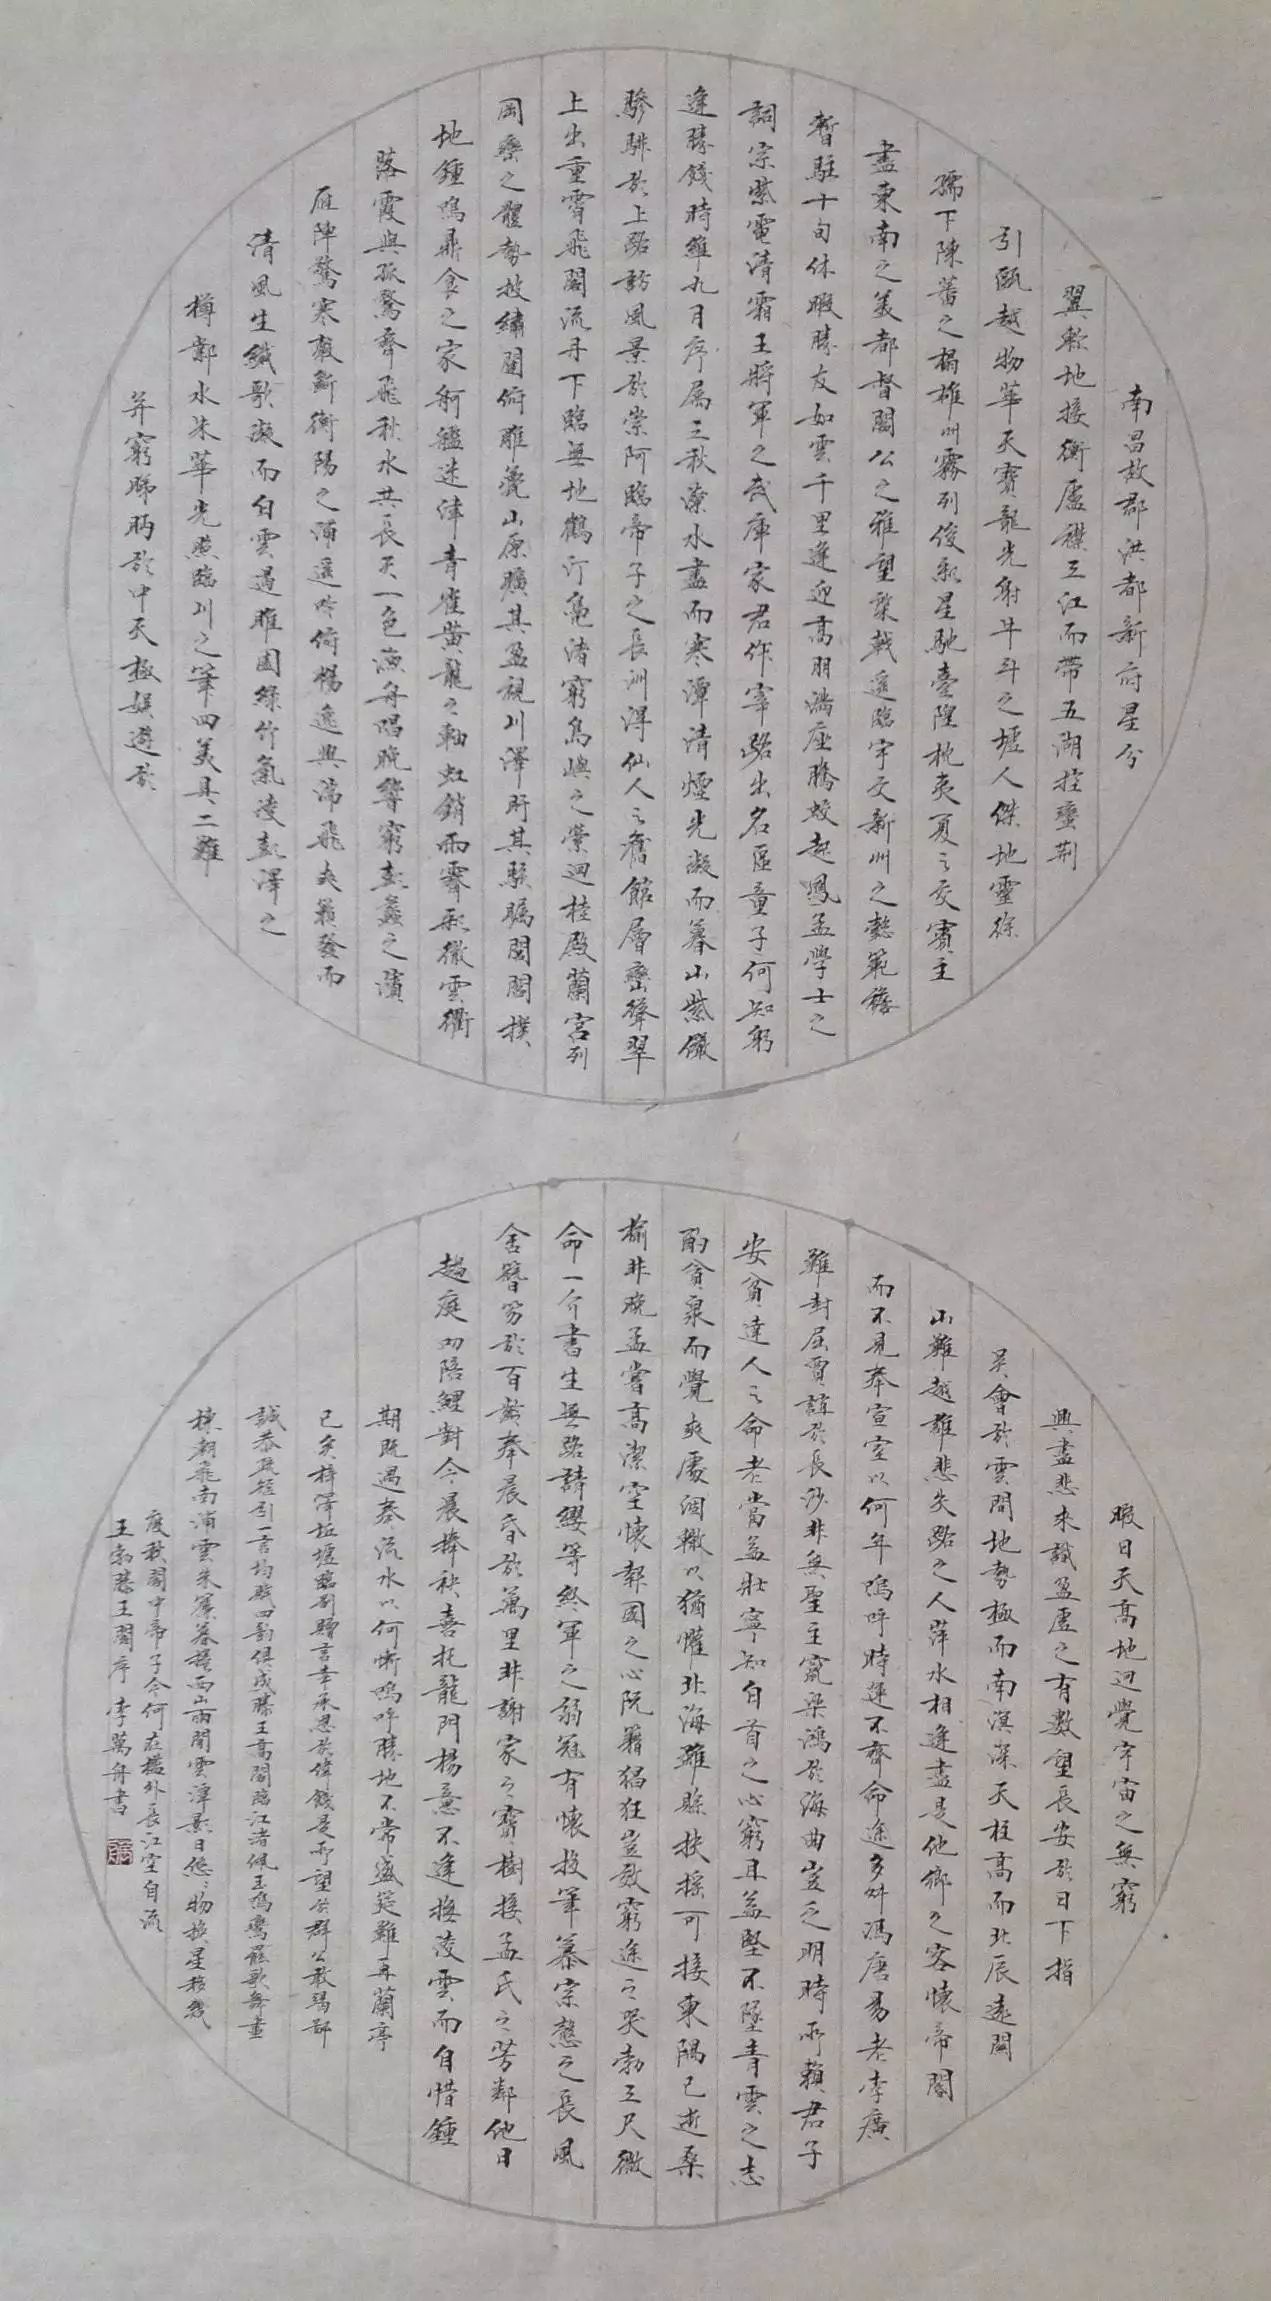 南昌故郡洪都新府星分
翼軫地接衡廬襟三江而帶五湖控蠻荆
引甌越物華天寶龍光射牛斗之墟人傑地靈徐
孺下陳蕃之榻雄州霧列俊彩星馳臺隍枕夷夏之交賓主
盡東南之美都督閻公之雅望棨戟遥臨宇文新州之懿範襜
暫駐十旬休暇勝友如雲千里逢迎高朋滿座騰蛟起鳳孟學士之
詞宗紫電清霜王將軍之武庫家君作宰路出名區童子何知躬
逢勝餞時維九月序屬三秋潦水盡而寒潭清煙光凝而暮山紫儼
驂騑於上路訪風景於崇阿臨帝子之長洲得仙人之舊館層巒聳翠
上出重霄飛閣流丹下臨無地鶴汀鳧渚窮島嶼之縈迴桂殿蘭宫列
岡巒之體勢披繡闥俯雕甍山原曠其盈視川澤盱其駭矚閭閻撲
地鍾鳴鼎食之家舸艦迷津青雀黄龍之軸虹銷雨霽彩徹雲衢
落霞與孤鶩齊飛秋水共長天一色漁舟唱晚響窮彭蠡之濱
雁陣驚寒聲斷衡陽之浦遥吟俯暢逸興湍飛爽籟發而
清風生纖歌凝而白雲遏睢園緑竹氣凌彭澤之
樽鄴水朱華光照臨川之筆四美具二難
并窮睇眄於中天極娱遊於
暇日天高地迥覺宇宙之無窮
興盡悲來識盈虚之有數望長安於日下指
吴會於雲間地勢極而南溟深天柱高而北辰遠關
山難越誰悲失路之人萍水相逢盡是他鄉之客懷帝閽
而不見奉宣室以何年嗚呼時運不齊命途多舛馮唐易老李廣
難封屈賈誼於長沙非無聖主竄梁鴻於海曲豈乏明時所賴君子
安貧達人之命老當益壯寧知白首之心窮且益堅不墜青雲之志
酌貪泉而覺爽處涸轍以猶懽北海雖賒扶摇可接東隅已逝桑
榆非晚孟嘗高潔空懷報國之心阮籍猖狂豈效窮途之哭勃三尺微
命一介書生無路請纓等終軍之弱冠有懷投筆慕宗慤之長風
舍簪笏於百齡奉晨昏於萬里非謝家之寶樹接孟氏之芳鄰他日
趨庭叨陪鯉對今晨捧袂喜托龍門楊意不逢撫凌雲而自惜鍾
期既遇奏流水以何慚嗚呼勝地不常盛筵難再蘭亭
已矣梓澤坵墟臨别贈言幸承恩於偉餞是所望於群公敢竭鄙
誠恭疏短引一言均賦四韵俱成滕王高閣臨江渚佩玉鳴鸞罷歌舞畫
棟朝飛南浦雲朱簾暮捲西山雨閒雲潭影日悠〻物换星移幾
度秋閣中帝子今何在檻外長江空自流
王勃滕王閣序 李萬舟書